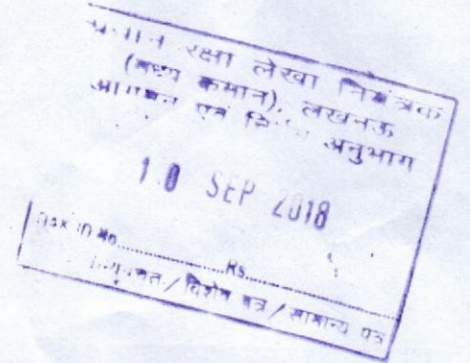 प्रधान रक्षा लेखा नियंत्रक
(मध्य कमान), लखनऊ
आगमन एवं अनुभाग
10 SEP 2018
Rs.
विशेष पत्र / सामान्य पत्र